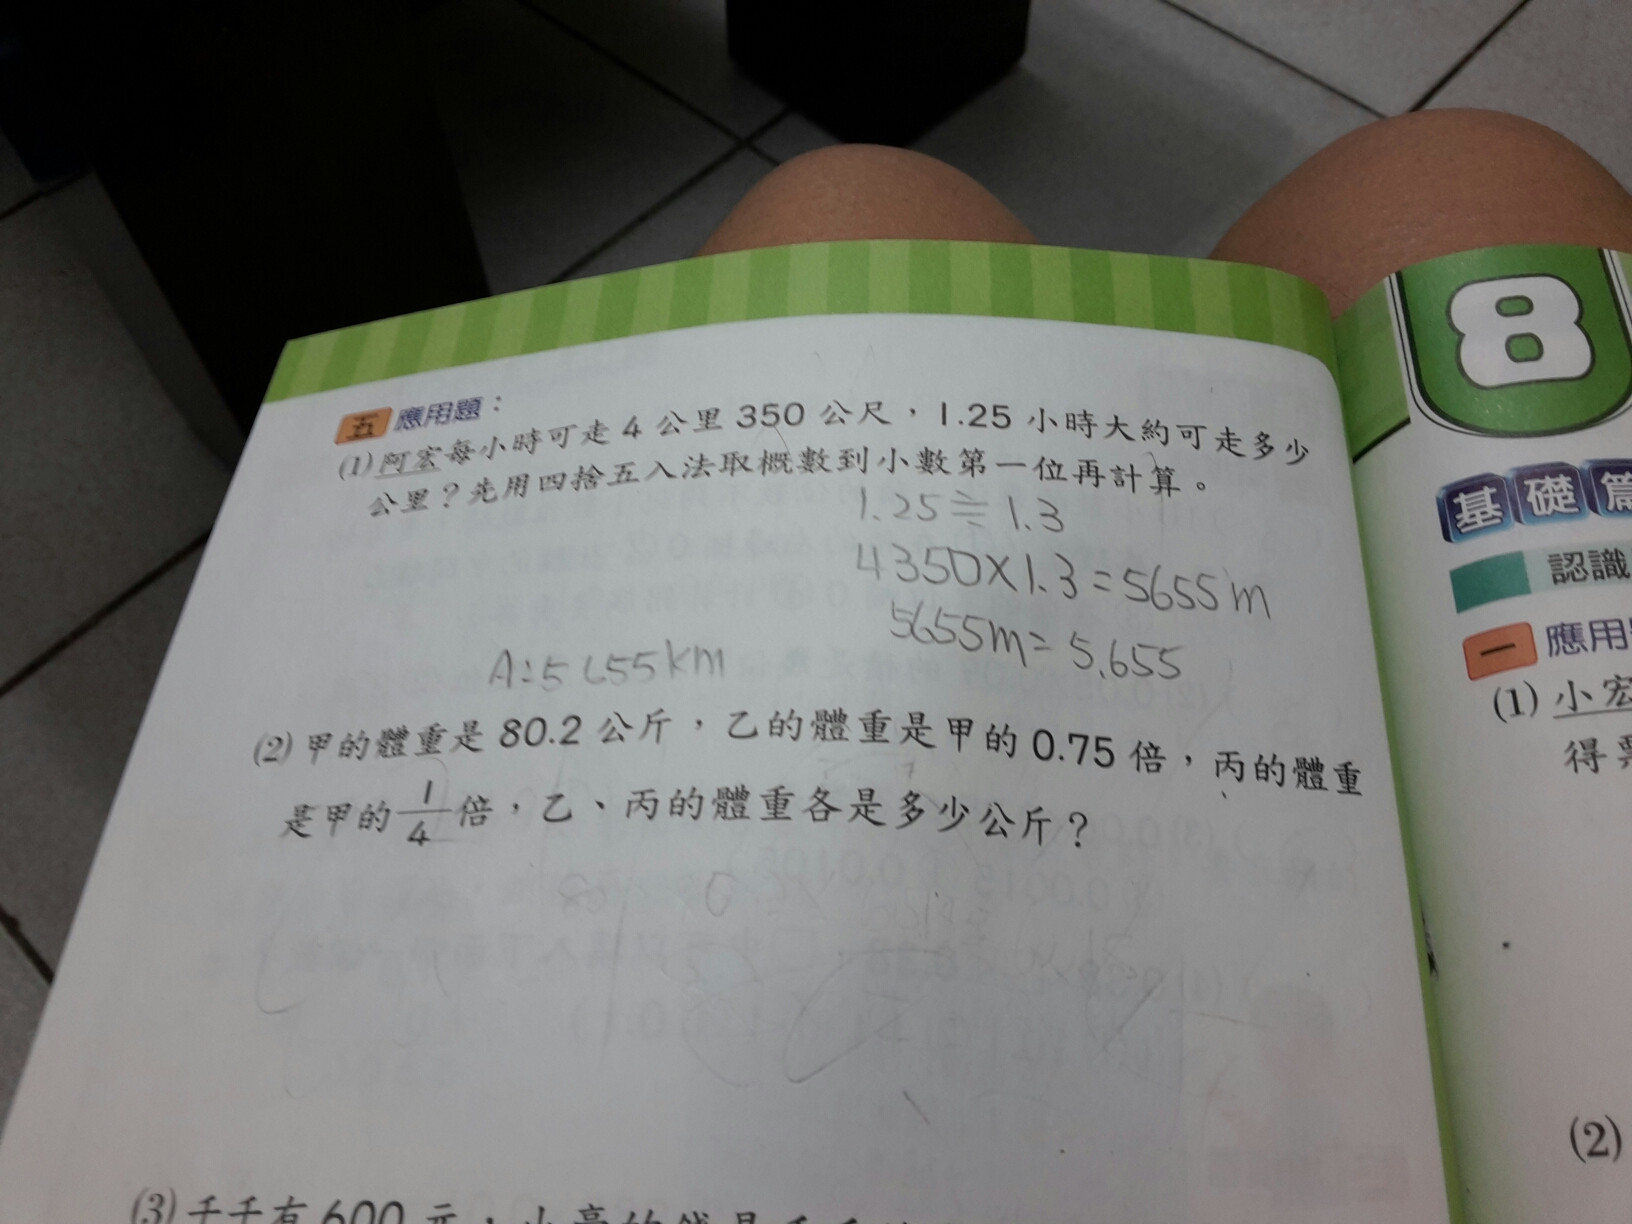 五 應用題：
(1) 阿宏每小時可走 4 公里 350 公尺，1.25 小時大約可走多少
公里？先用四捨五入法取概數到小數第一位再計算。
1.25≒1.3
4350×1.3=5655m
5655m=5.655
A:5655km
(2) 甲的體重是 80.2 公斤，乙的體重是甲的 0.75 倍，丙的體重
是甲的 1/4 倍，乙、丙的體重各是多少公斤？
(3) 千千有 600 元，小
8
基礎篇
認識
一 應用
(1) 小宏
得票
(2)